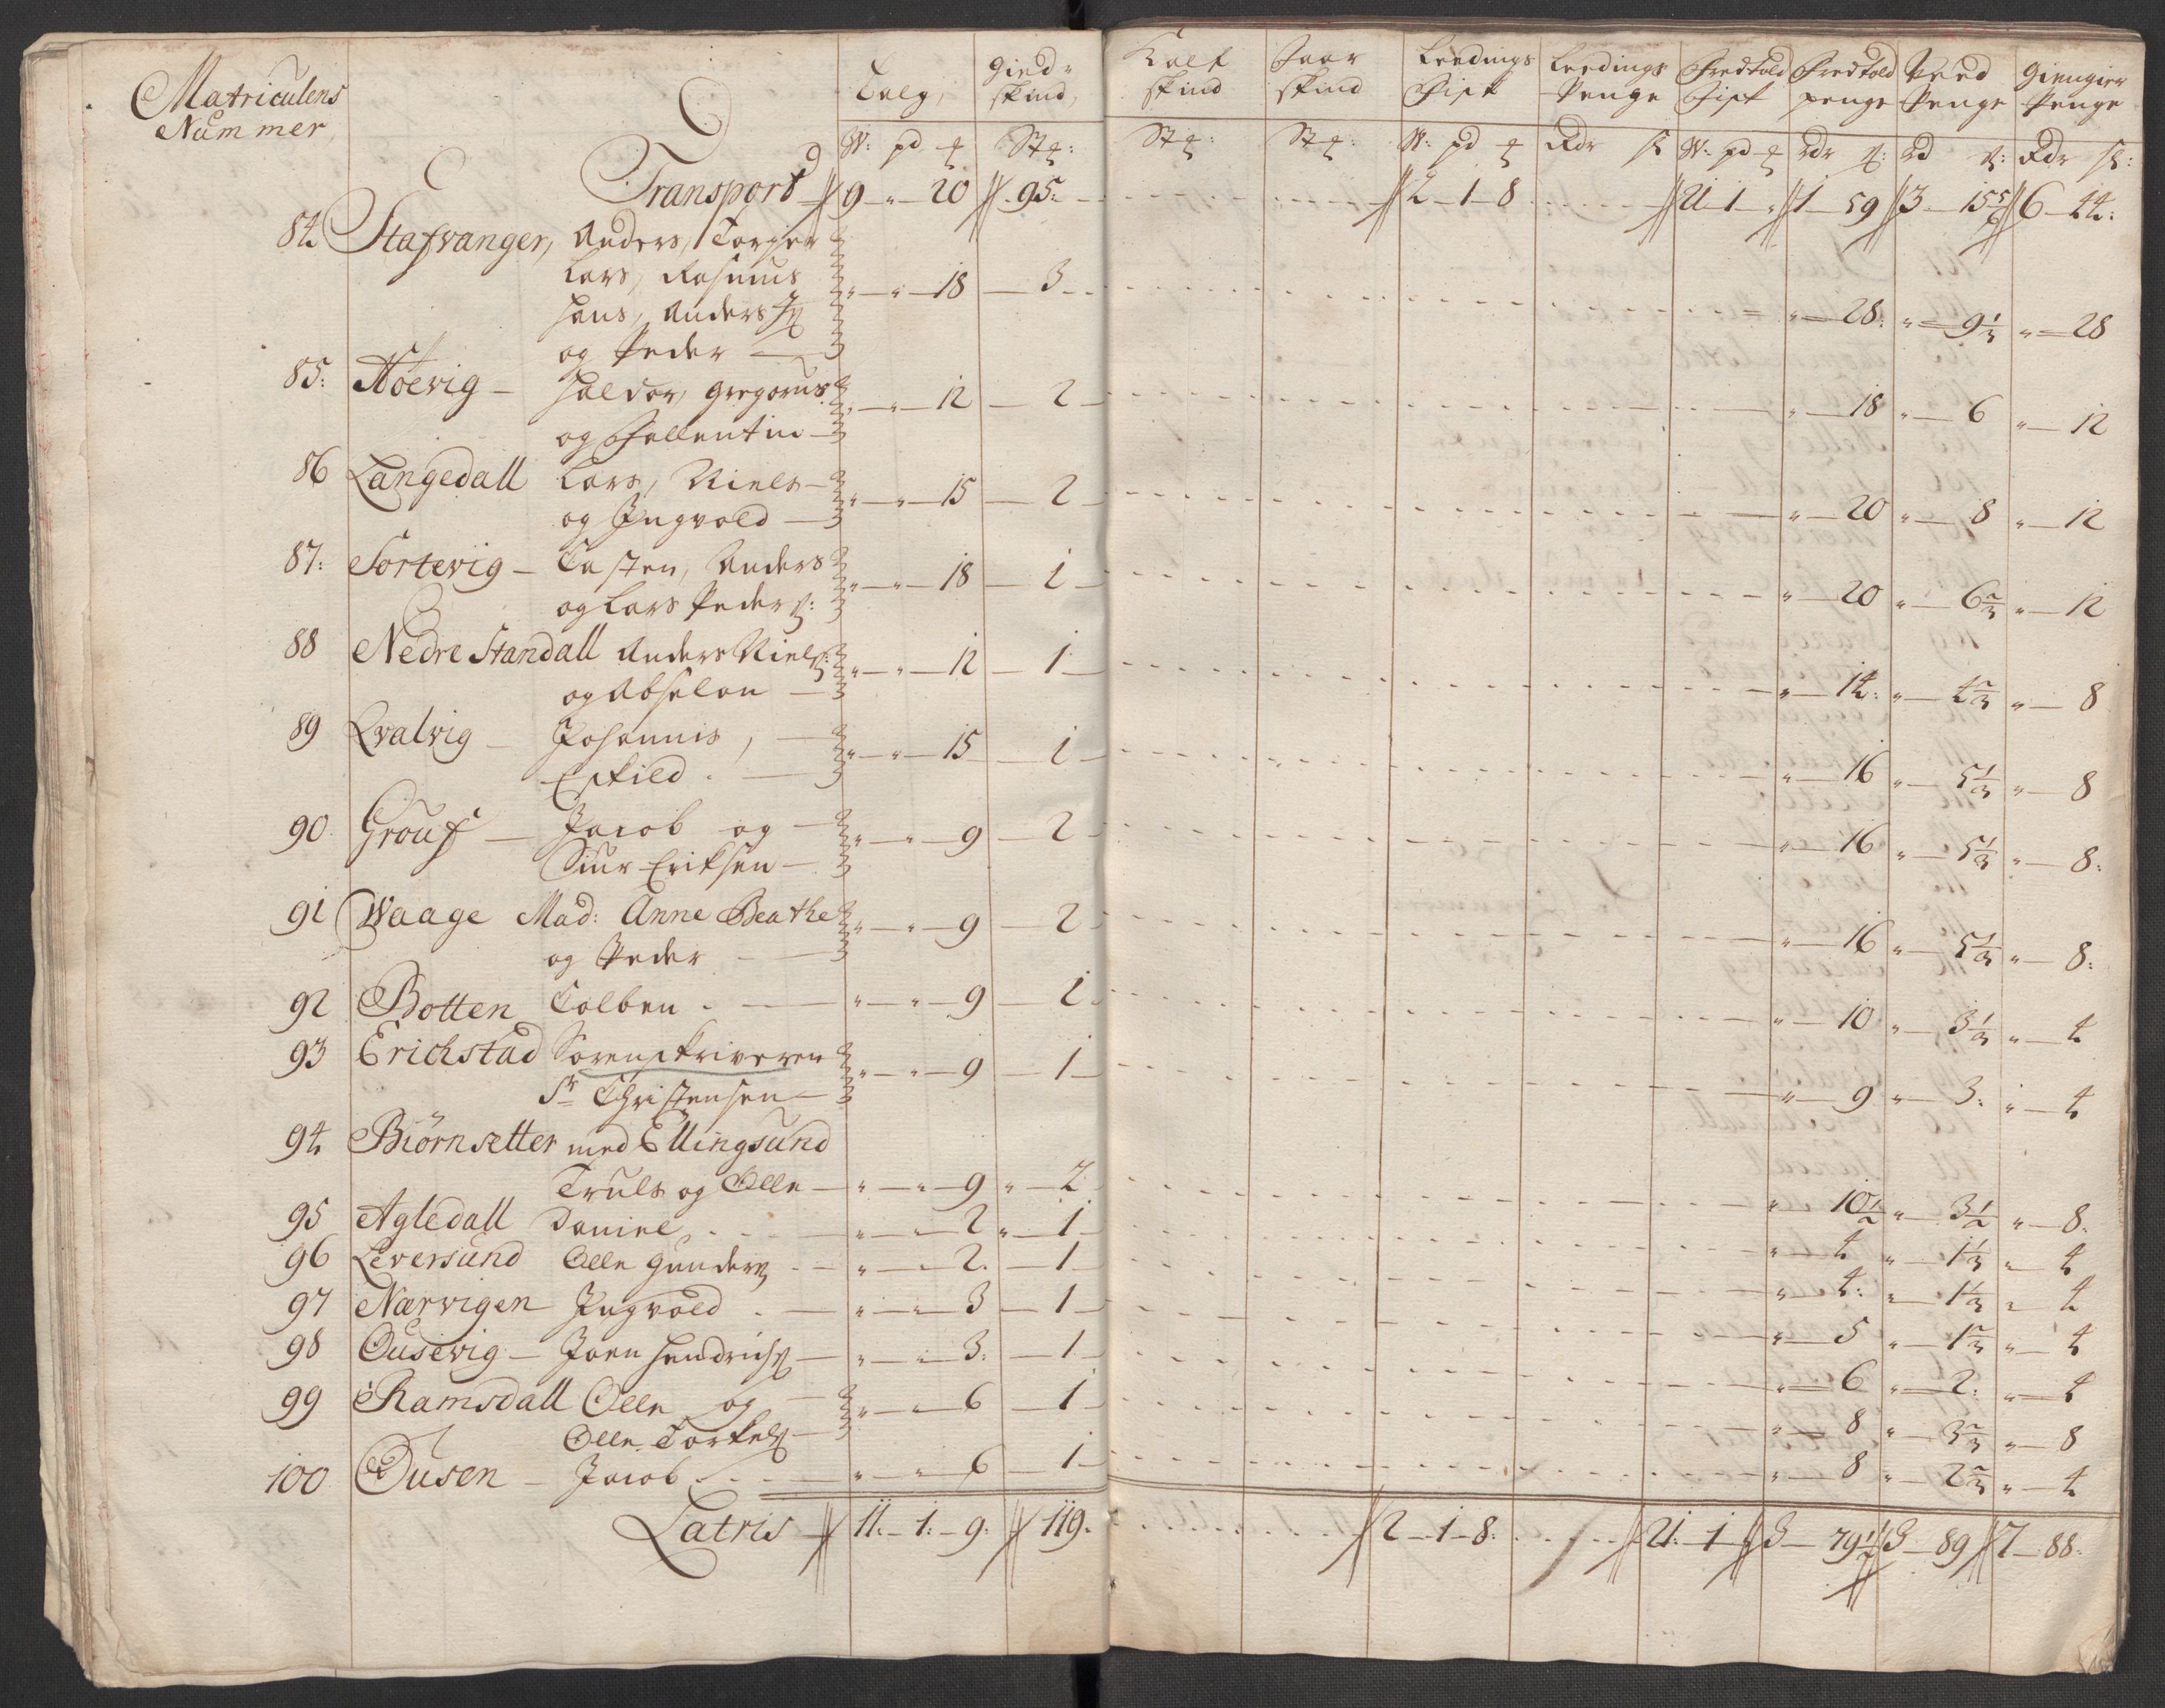 Matriculens
Nummer
Talg, Gied- skind, Kalf skind Faar skind Leedings Fisk Leedings Penge Fredtold Fisk Fredtold penge Penge Giengier Penge
W: pd St: St: St: W: pd Rdr W: pd rdr rd Rdr
Transport 9 " 20 95: 2 1 8 21 1 " 1 59 3 15 5/6 6 44:
84 Stafvanger, Anders, Torger
Lars, Rasmus " " 18 3
Hans, Anders " 28: " 9 1/3 " 28
og Peder
85: Høevig – Haldor, Gregorius " " 12 2 " 18 " 6 " 12
og Fallentin
86 Langedall Lars, Niels " " 15 2 " 20 " 8 " 12
og Ingvold
87: Sortevig – Casten, Anders " " 18 1 " 20 " 6 2/3 " 12
og Lars Peders:
88 Nedre Standall Anders Niels: " " 12 1 " 14: " 4 2/3 " 8
og Abselon
89 Qvalvig – Johannis, " " 15 1 " 16 " 5 1/3 " 8
Eskild
90 Grouf – Jacob og " " 9 2 " 16 " 5 1/3 " 8:
Siur Eriksen
91 Waage Mad: Anne Beathe " " 9 2 " 16 " 5 1/3 " 8:
og Peder
92 Botten Colben " " 9 1 " 10 " 3 1/3 " 4
93 Erichstad Sorenskriveren " " 9 1 " 9 " 3: " 4
Sr Christensen
94 Biörnsetter med Ellingsund
Truls og Olle " " 9 " 2 " 10 1/2 " 3 1/2 " 8:
95 Agledall Daniel " " 2 " 1 " 4 " 1 1/3 " 4
96 Leversund Olle Gunders " " 2. 1 " 4: " 1 1/3 " 4
97 Nærvigen Ingvold " " 3 1 " 5 " 1 2/3 " 4
98 Ousevig – Joen Hendrichs " " 3: 1 " 6 " 2: " 4
99 Ramsdall Olle og " " 6 1 " 8 " 3 2/3 " 8
Olle Torkels
100 Ousen – Jacob " " 6 1 " 8 " 2 2/3 " 4
Latris 11. 1. 9. 119. 2 1 8. 21. 1 3 79 1/2 3 89 7 88.